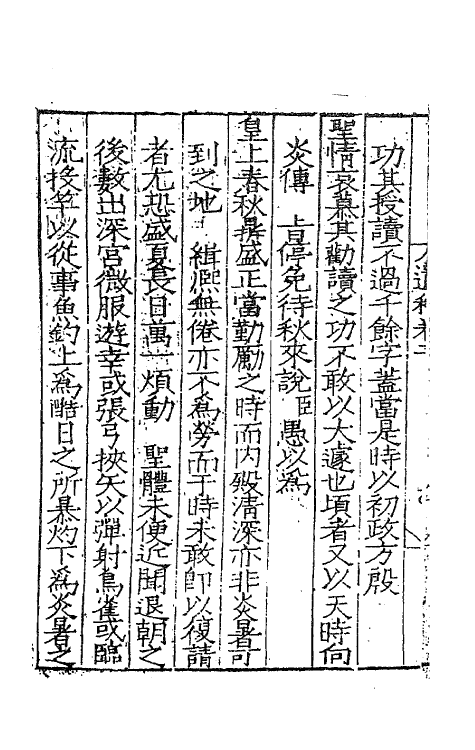 功其授讀不過千餘字蓋當是時以初政方殷
聖情哀慕其勸讀之功不敢以大遽也頃者又以天時向
炎傳 旨停免待秋來說臣愚以為
皇上春秋鼎盛正當勤勵之時而内殿清深亦非炎暑可
到之地 緝熙無倦亦不為勞而于時未敢即以復請
者尤恐盛夏長日萬一煩動 聖體未便近聞退朝之
後數出深宫微服遊幸或張弓挾矢以彈射鳥雀或臨
流投竿以從事魚釣上為酷日之所暴灼下為炎暑之